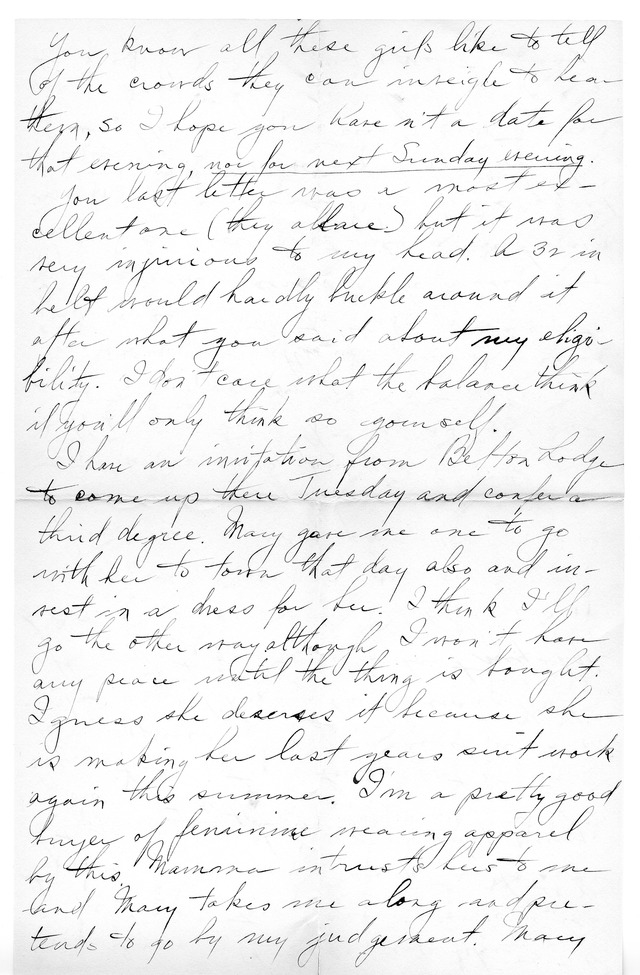 You know all these girls like to tell
of the crowds they can inveigle to hear
them, so I hope you have n't a date for
that evening, nor for next Sunday evening.
You last letter was a most ex-
cellent one (they all are.) but it was
very injurious to my head. A 32 in
belt would hardly buckle around it
after what you said about my eligi-
bility. I don't care what the balance think
if you'll only think so yourself.
I have an invitation from Belton Lodge
to come up there Tuesday and confer a
third degree. Mary gave me one to go
with her to town that day also and in-
vest in a dress for her. I think I'll
go the other way although I won't have
any peace until the thing is bought.
I guess she deserves it because she
is making her last years suit work
again this summer. I'm a pretty good
buyer of feminine wearing apparel
by this. Mamma intrusts hers to me
and Mary takes me along and pre-
tends to go by my judgement. Mary